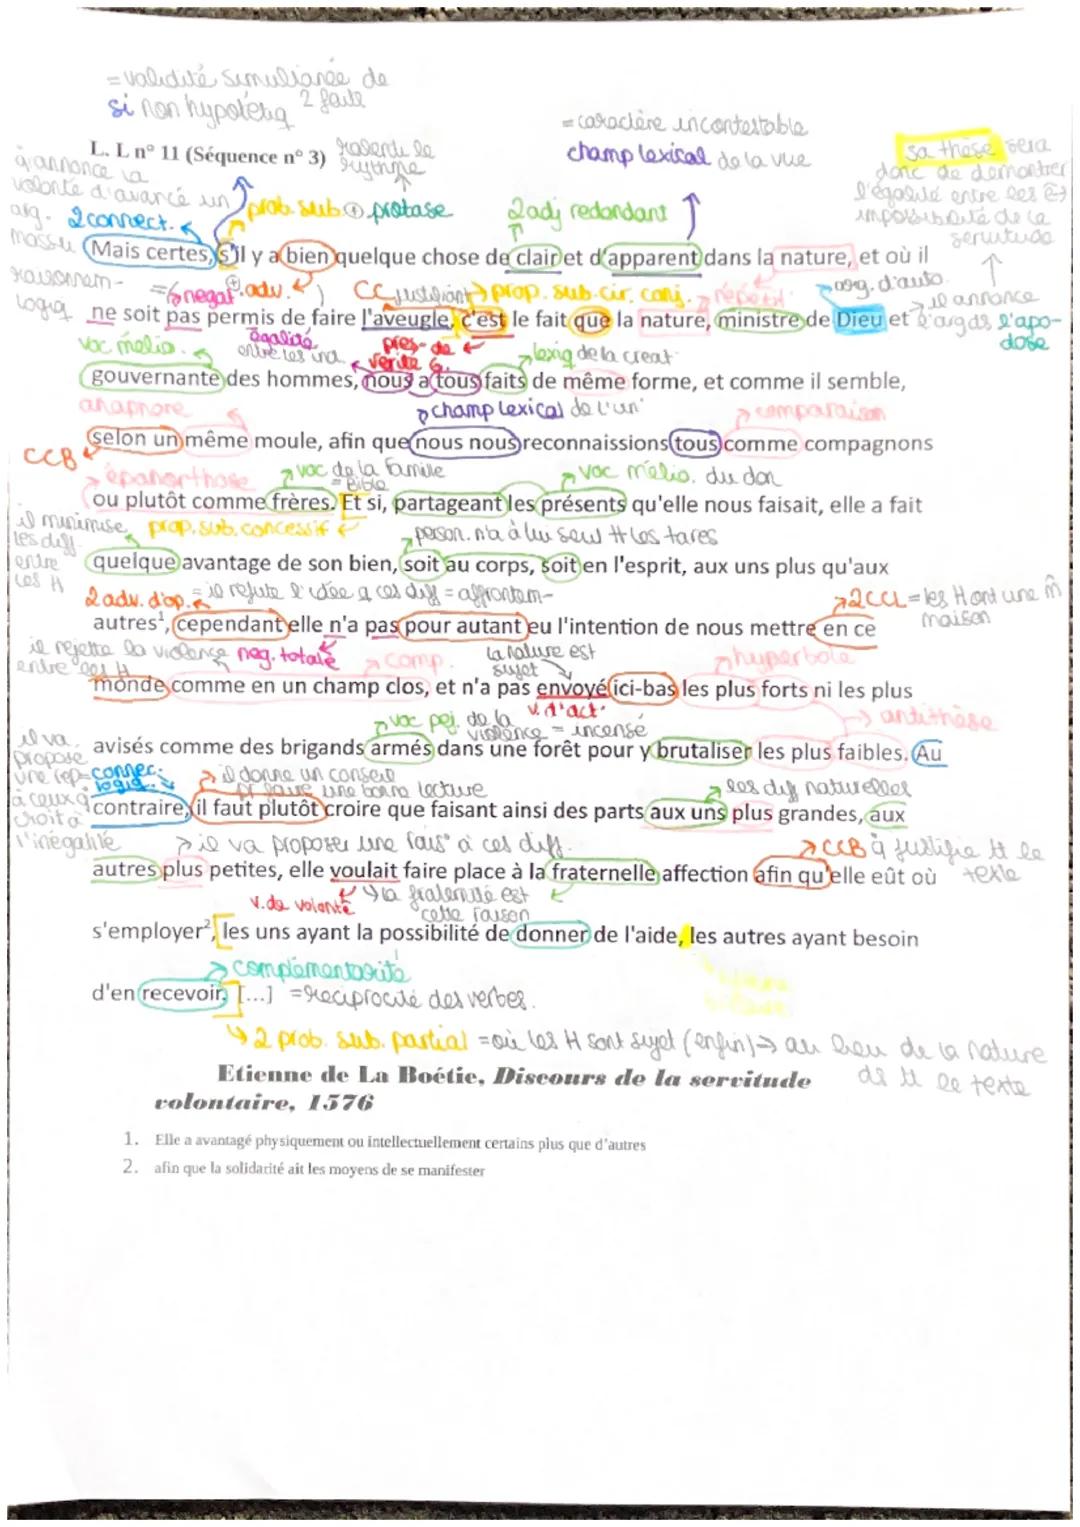 = validité simultanée de
2 faits
si non hypotétiq
= caractère incontestable
champ lexical de la vue
sa thèse sera
donc de démontrer
l'égalité entre les
impossibilité de la
servitude
L. L n° 11 (Séquence n° 3)
ralenti le
rythme
q annonce la
volonté d'avancé un
arg.
massu
2 connect.
prob. sub. protase
2 adj redondant
Mais certes, s'il y a bien quelque chose de clair et d'apparent dans la nature, et où il
raisonnem-
logiq
negat°
adv.
CC justifiant
prop. sub. cir. conj.
répétit°
arg. d'auto.
il annonce
l'arg ds l'apo-
dose
ne soit pas permis de faire l'aveugle, c'est le fait que la nature, ministre de Dieu et
voc mélio.
égalité
entre les
prés- de
vérité G.
lexiq de la creat°
gouvernante des hommes, nous a tous faits de même forme, et comme il semble,
anaphore
champ lexical de l'un
comparaison
selon un même moule, afin que nous nous reconnaissions tous comme compagnons
CCB
épanorthose
voc de la famille
= Bible
voc mélio. du don
ou plutôt comme frères. Et si, partageant les présents qu'elle nous faisait, elle a fait
il minimise
les diff
entre
les H
prop. sub. concessif
person. n'a à lui seul tt les tares
quelque avantage de son bien, soit au corps, soit en l'esprit, aux uns plus qu'aux
2 adv. d'op.
= il réfute l'idée q ces diff = affrontem-
2 CCL = les H ont une m̂
maison
autres¹, cependant elle n'a pas pour autant eu l'intention de nous mettre en ce
il rejette la violence
entre les H
neg. totale
comp.
la nature est
sujet
hyperbole
monde comme en un champ clos, et n'a pas envoyé ici-bas les plus forts ni les plus
v. d'act°
voc pej. de la
violence = incensé
antithèse
avisés comme des brigands armés dans une forêt pour y brutaliser les plus faibles. Au
il va
propose
une rep
à ceux q
croit à
l'inégalité
connec.
logiq.
il donne un conseil
pr faire une bonne lecture
les diff naturelles
contraire, il faut plutôt croire que faisant ainsi des parts aux uns plus grandes, aux
il va proposer une rais° à ces diff.
CCB q justifie tt le
texte
autres plus petites, elle voulait faire place à la fraternelle affection afin qu'elle eût où
v. de volonté
la fraternité est
cette raison
s'employer², les uns ayant la possibilité de donner de l'aide, les autres ayant besoin
complémentarité
d'en recevoir. [...] = réciprocité des verbes.
2 prob. sub. partial = où les H sont sujet (enfin) → au lieu de la nature
ds tt le texte
Etienne de La Boétie, Discours de la servitude
volontaire, 1576
1. Elle a avantagé physiquement ou intellectuellement certains plus que d'autres
2. afin que la solidarité ait les moyens de se manifester